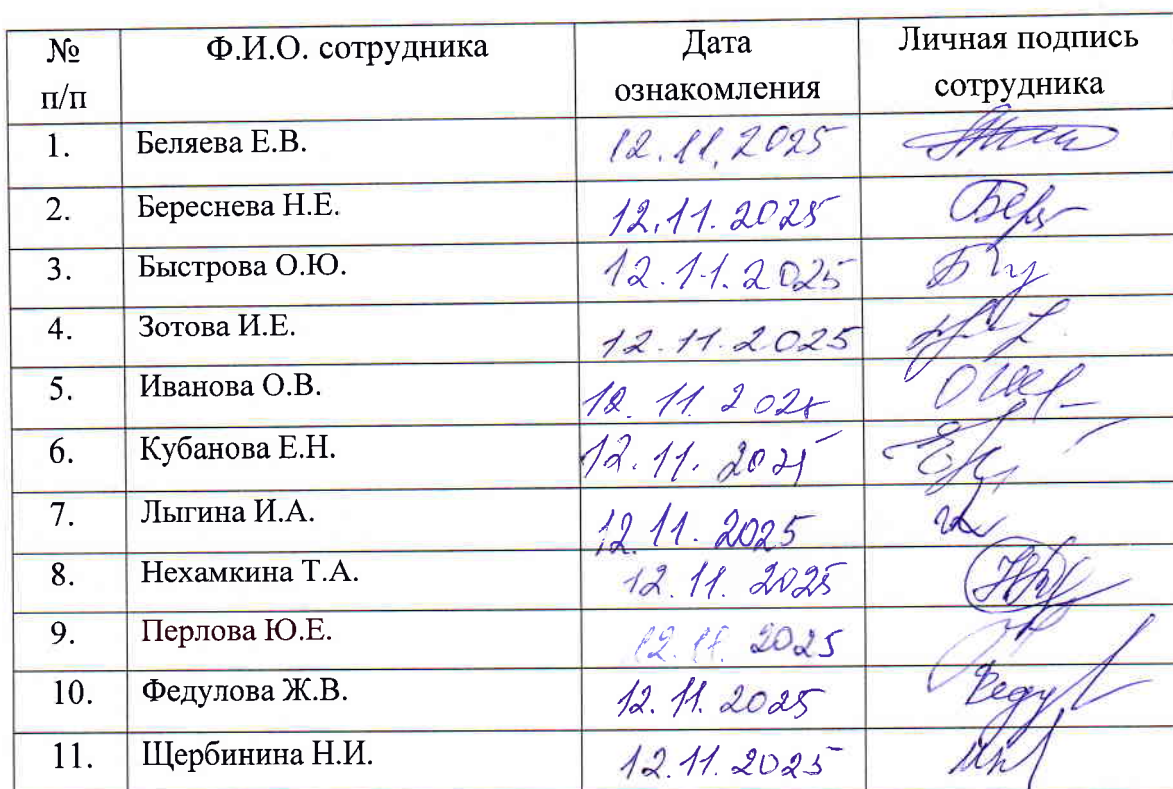 № п/п Ф.И.О. сотрудника Дата ознакомления Личная подпись сотрудника
1. Беляева Е.В. 12.11.2025
2. Береснева Н.Е. 12.11.2025
3. Быстрова О.Ю. 12.11.2025
4. Зотова И.Е. 12.11.2025
5. Иванова О.В. 12.11.2025
6. Кубанова Е.Н. 12.11.2025
7. Лыгина И.А. 12.11.2025
8. Нехамкина Т.А. 12.11.2025
9. Перлова Ю.Е. 12.11.2025
10. Федулова Ж.В. 12.11.2025
11. Щербинина Н.И. 12.11.2025